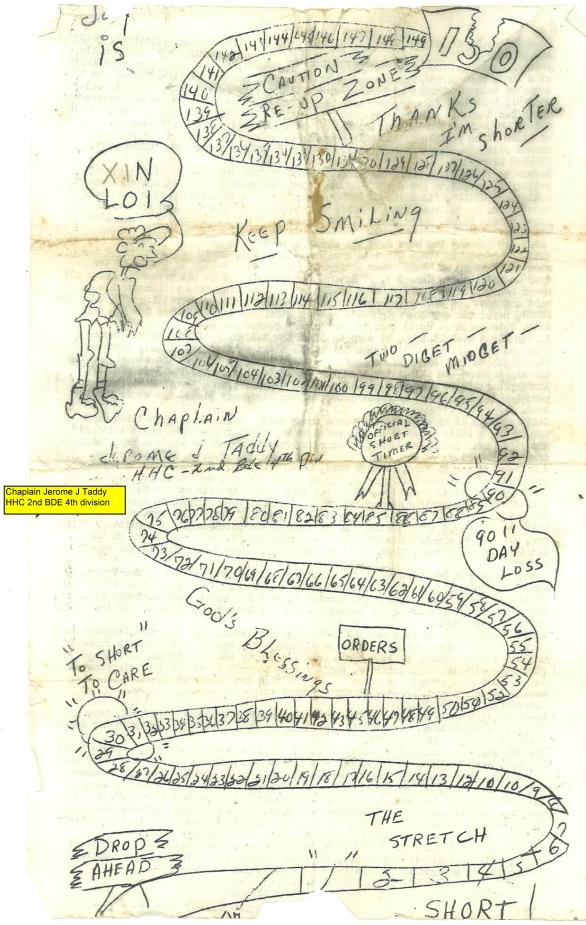 is
142 144 146 147 148 149
150
141
140
139
CAUTION
RE-UP ZONE
THANKS
I'M SHORTER
129
124
123
122
121
120
XIN
LOI
KEEP SMILING
110 111 112 113 114 115 116 117 118 119
107
TWO DIGET MIDGET
104 103 102 101 100 99 98 97 96 95 94 93
92
91
90
Chaplain
Jerome J Taddy
HHC - 2nd Bde 4th Div
Chaplain Jerome J Taddy
HHC 2nd BDE 4th division
OFFICIAL
SHORT
TIMER
90 11
DAY
LOSS
75 76 77 78 79 80 81 82 83 84 85 86 87 88
74
73 72 71 70 69 68 67 66 65 64 63 62 61 60 59 58 57 56
55
54
53
God's Blessings
ORDERS
"TO SHORT
TO CARE"
30 31 32 33 34 35 36 37 38 39 40 41 42 43 44 45 46 47 48 49 50 51 52
29
28 27 26 25 24 23 22 21 20 19 18 17 16 15 14 13 12 10 10 9 8
7
6
THE
STRETCH
DROP
AHEAD
3 4 5
SHORT!